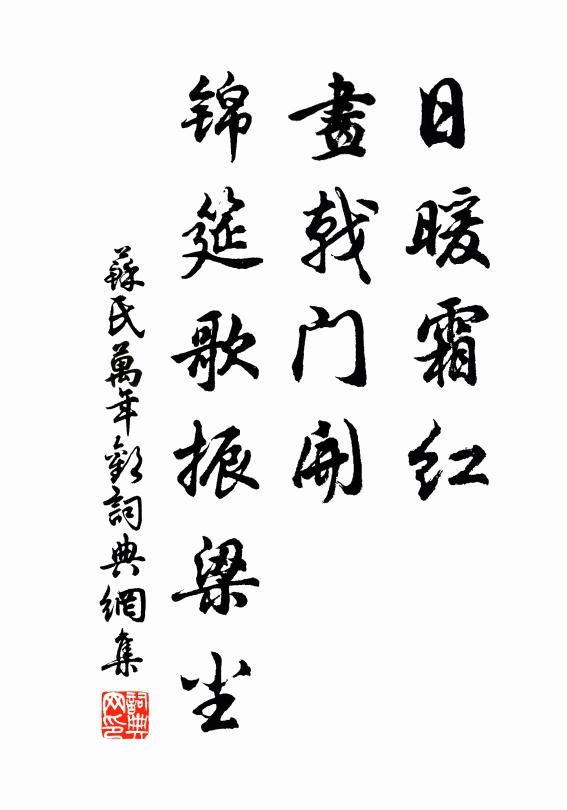 日暖霜红
畫戟门開
锦筵歌振梁尘
蘇氏萬年歡詞典網集
詞典网印